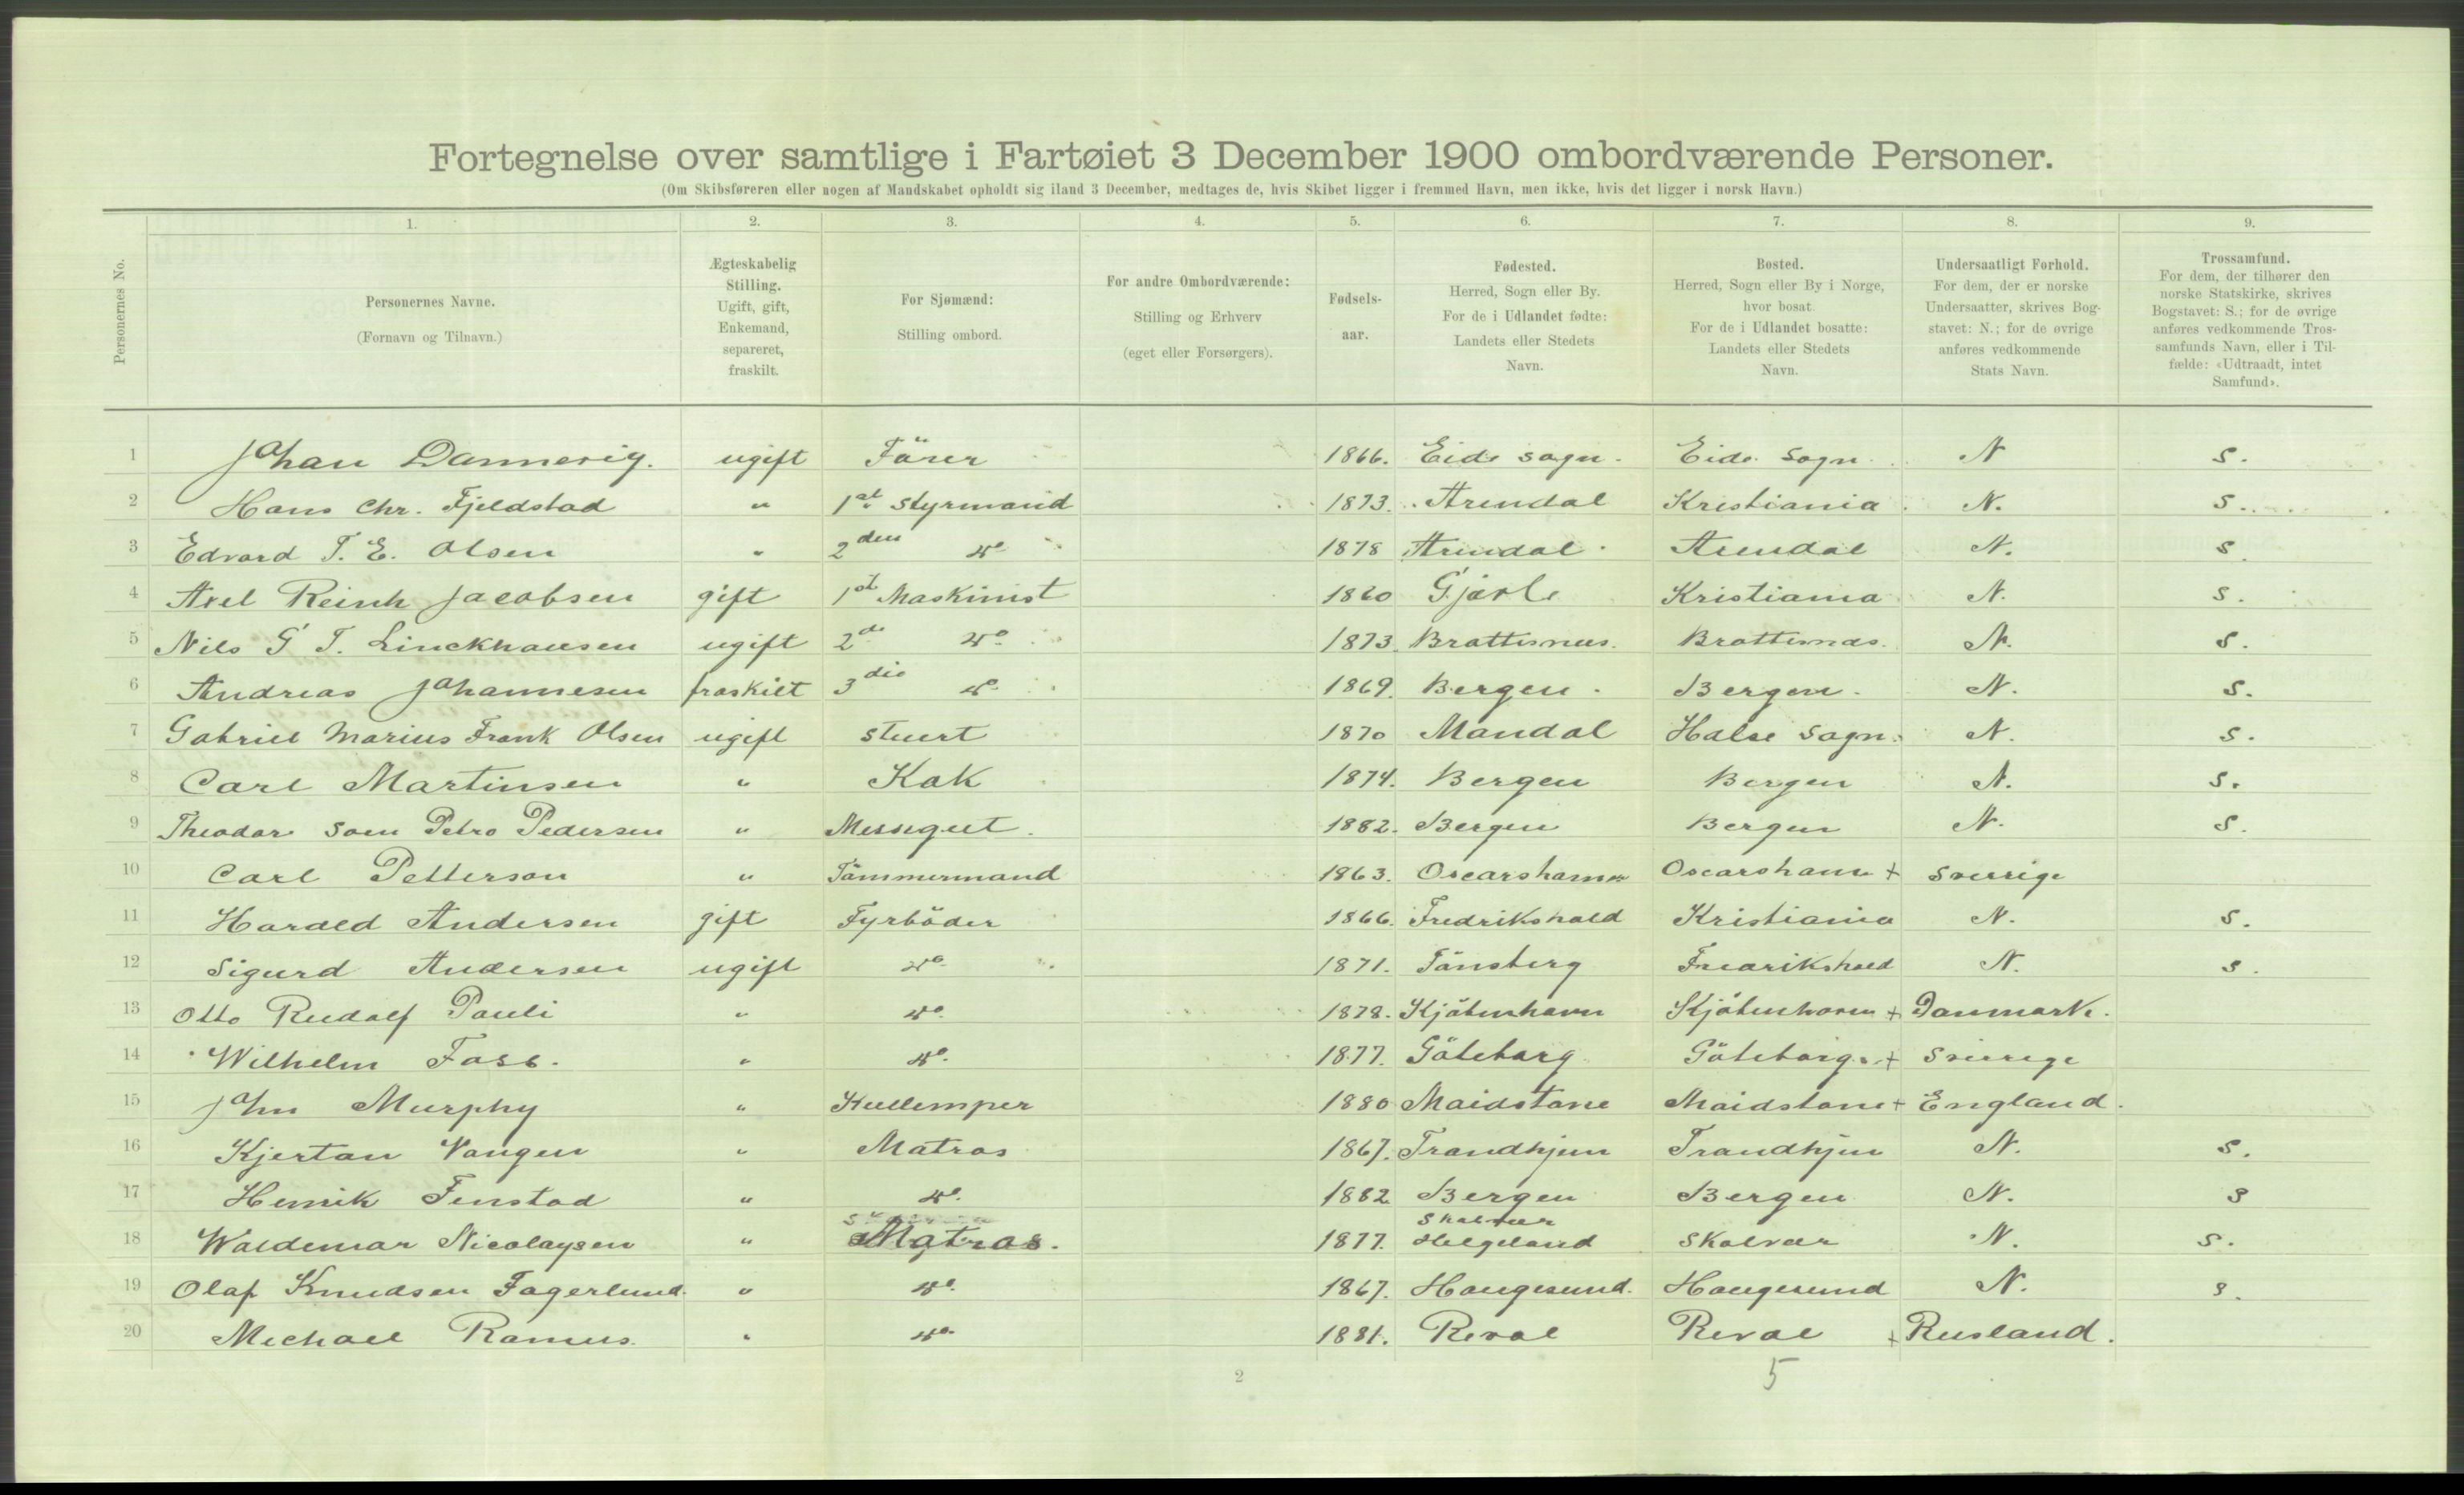 Fortegnelse over samtlige i Fartøiet 3 December 1900 ombordværende Personer.
(Om Skibsføreren eller nogen af Mandskabet opholdt sig iland 3 December, medtages de, hvis Skibet ligger i fremmed Havn, men ikke, hvis det ligger i norsk Havn.)
1. 2. 3. 4. 5. 6. 7. 8. 9.
Personernes No.
Personernes Navne.
(Fornavn og Tilnavn.)
Ægteskabelig
Stilling.
Ugift, gift,
Enkemand,
separeret,
fraskilt.
For Sjømænd:
Stilling ombord.
For andre Ombordværende:
Stilling og Erhverv
(eget eller Forsørgers).
Fødsels-
aar.
Fødested.
Herred, Sogn eller By.
For de i Udlandet fødte:
Landets eller Stedets
Navn.
Bosted.
Herred, Sogn eller By i Norge,
hvor bosat.
For de i Udlandet bosatte:
Landets eller Stedets
Navn.
Undersaatligt Forhold.
For dem, der er norske
Undersaatter, skrives Bog-
stavet: N.; for de øvrige
anføres vedkommende
Stats Navn.
Trossamfund.
For dem, der tilhører den
norske Statskirke, skrives
Bogstavet: S.; for de øvrige
anføres vedkommende Tros-
samfunds Navn, eller i Til-
fælde: «Udtraadt, intet
Samfund».
1 Johan Dannevig. ugift Förer 1866. Eide sogn. Eide Sogn N S.
2 Hans Chr. Fjeldstad " 1st Styrmand 1873. Arendal Kristiania N. S.
3 Edvard T. E. Olsen " 2den do 1878 Arendal. Arendal N. S
4 Axel Reinh Jacobsen gift 1st Maskinist 1860 Gjøvle Kristiania N. S.
5 Nils G T. Linckhausen ugift 2de do 1873. Brattesnes. Brattesnes. N. S.
6 Andreas Johannesen fraskilt 3die do 1869. Bergen. Bergen. N. S.
7 Gabriel Marius Frank Olsen ugift Stuert 1870 Mandal Halse Sogn. N. S.
8 Carl Martinsen " Kok 1874. Bergen Bergen N. S.
9 Theodor Soen Petro Pedersen " Messegut. 1882. Bergen Bergen N. S.
10 Carl Petterson " Tömmermand 1863. Oscarshamn Oscarshamn + Sverrige
11 Harald Andersen gift Fyrböder 1866. Fredrikshald Kristiania N. S.
12 Sigurd Andersen ugift do 1871. Tönsberg Fredrikshald N. S.
13 Otto Rudolf Pauli " do 1878. Kjöbenhavn Kjöbenhavn + Danmark.
14 Wilhelm Foss. " do 1877. Göteborg Göteborg. + Sverrige
15 John Murphy " Kullemper 1880 Maidstone Maidstone + England.
16 Kjertan Vangen " Matros 1867. Trondhjem Trondhjem N. S.
17 Henrik Finstad " do 1882 Bergen Bergen N. S
18 Waldemar Nicolaysen " Matros. 1877. Skalvær Helgeland Skalvær N. S.
19 Olaf Knudsen Fagerlund. " do 1867. Haugesund. Haugesund N. S.
20 Michael Ramus. " do 1881. Reval Reval + Rusland.
2 5